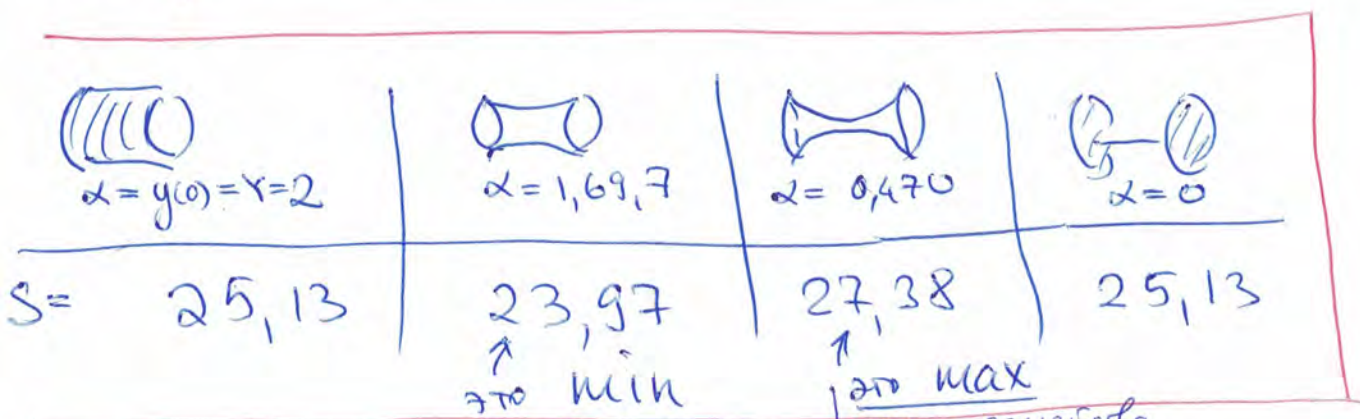 α = y(0) = r = 2
α = 1,69,7
α = 0,470
α = 0
S = 25,13
23,97
27,38
25,13
↑
это min
↑
это max